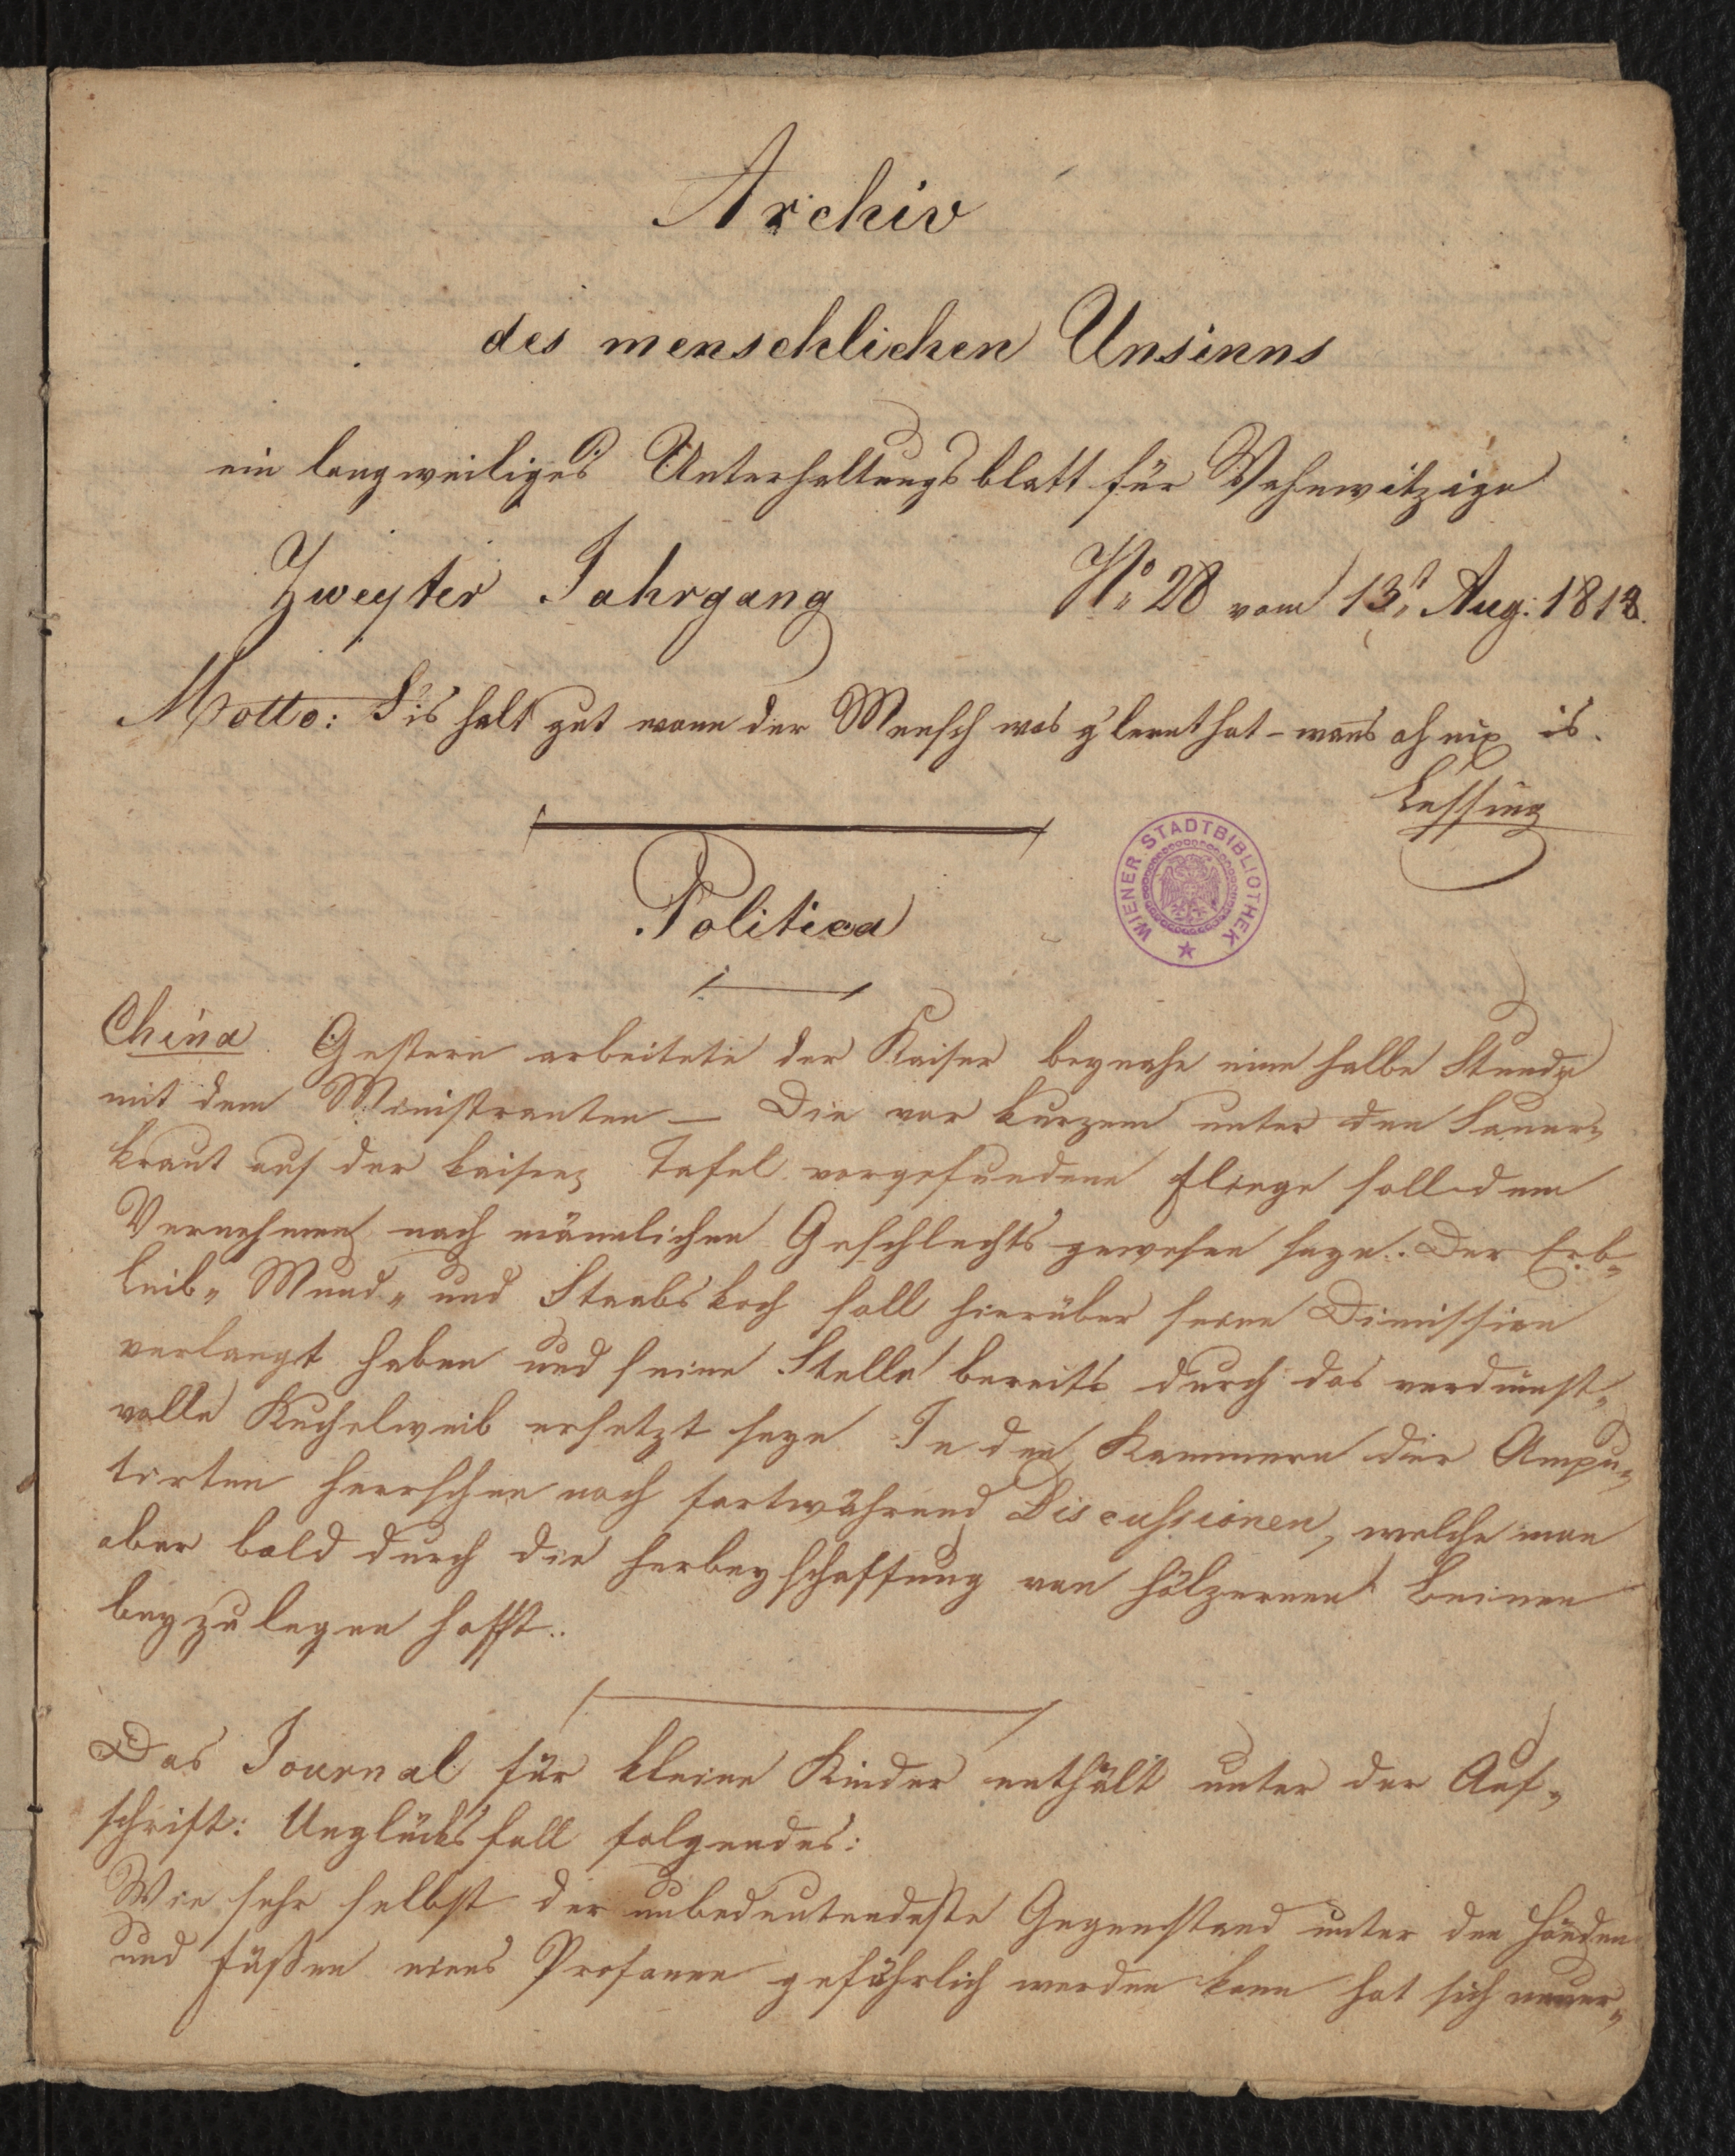 Archiv
des menschlichen Unsinns
ein langweiliges Unterhaltungsblatt für Wahnwitzige
Zweyter Jahrgang No 28 vom 13t Aug: 1818.
Motto: S'is halt gut wann der Mensch was g'lernt hat – wanns ah nix is.
Lessing
WIENER STADTBIBLIOTHEK
Politica
China. Gestern arbeitete der Kaiser beynahe eine halbe Stunde
mit dem Ministranten – Die vor kurzem unter den Sauer-
kraut auf der kaiser Tafel vorgefundene Fliege soll dem
Vernehmen nach männlichen Geschlechts gewesen seyn. Der Erb-
Leib- Mund- und Staabskoch soll hierüber seine Dimission
verlangt haben und seine Stelle bereits durch das verdienst-
volle Kuchelweib ersetzt seyn. In den Kammern der Ampu-
tirten herrschen noch fortwährend Discussionen, welche man
aber bald durch die Herbeyschaffung von hölzernen Beinen
beyzulegen hofft.
Das Journal für kleine Kinder enthält unter der Auf-
schrift: Unglücksfall folgendes:
Wie sehr selbst der unbedeutendeste Gegenstand unter den Händen
und Füßen eines Profanen gefährlich werden kann hat sich neuer-